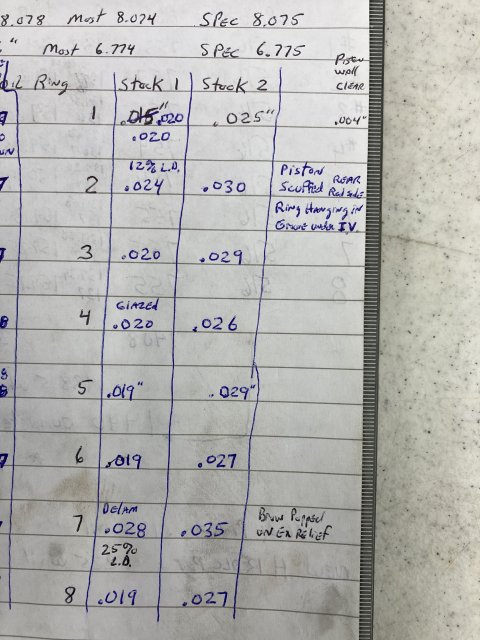 8.078 Most 8.074 SPEC 8.075
" Most 6.774 SPEC 6.775
Oil Ring Stock 1 Stock 2 Piston
wall
CLEAR
1 .015 .020" .025" .004"
.020
12% L.D. Piston REAR
2 .024 .030 Scuffed Rad side
Ring Hanging in
Grove under I.V.
3 .020 .029
GLAZED
4 .020 .026
5 .019" .029"
6 .019 .027
DELAM
7 .028 .035 Popped
ON EX RELIEF
25%
L.D.
8 .019 .027